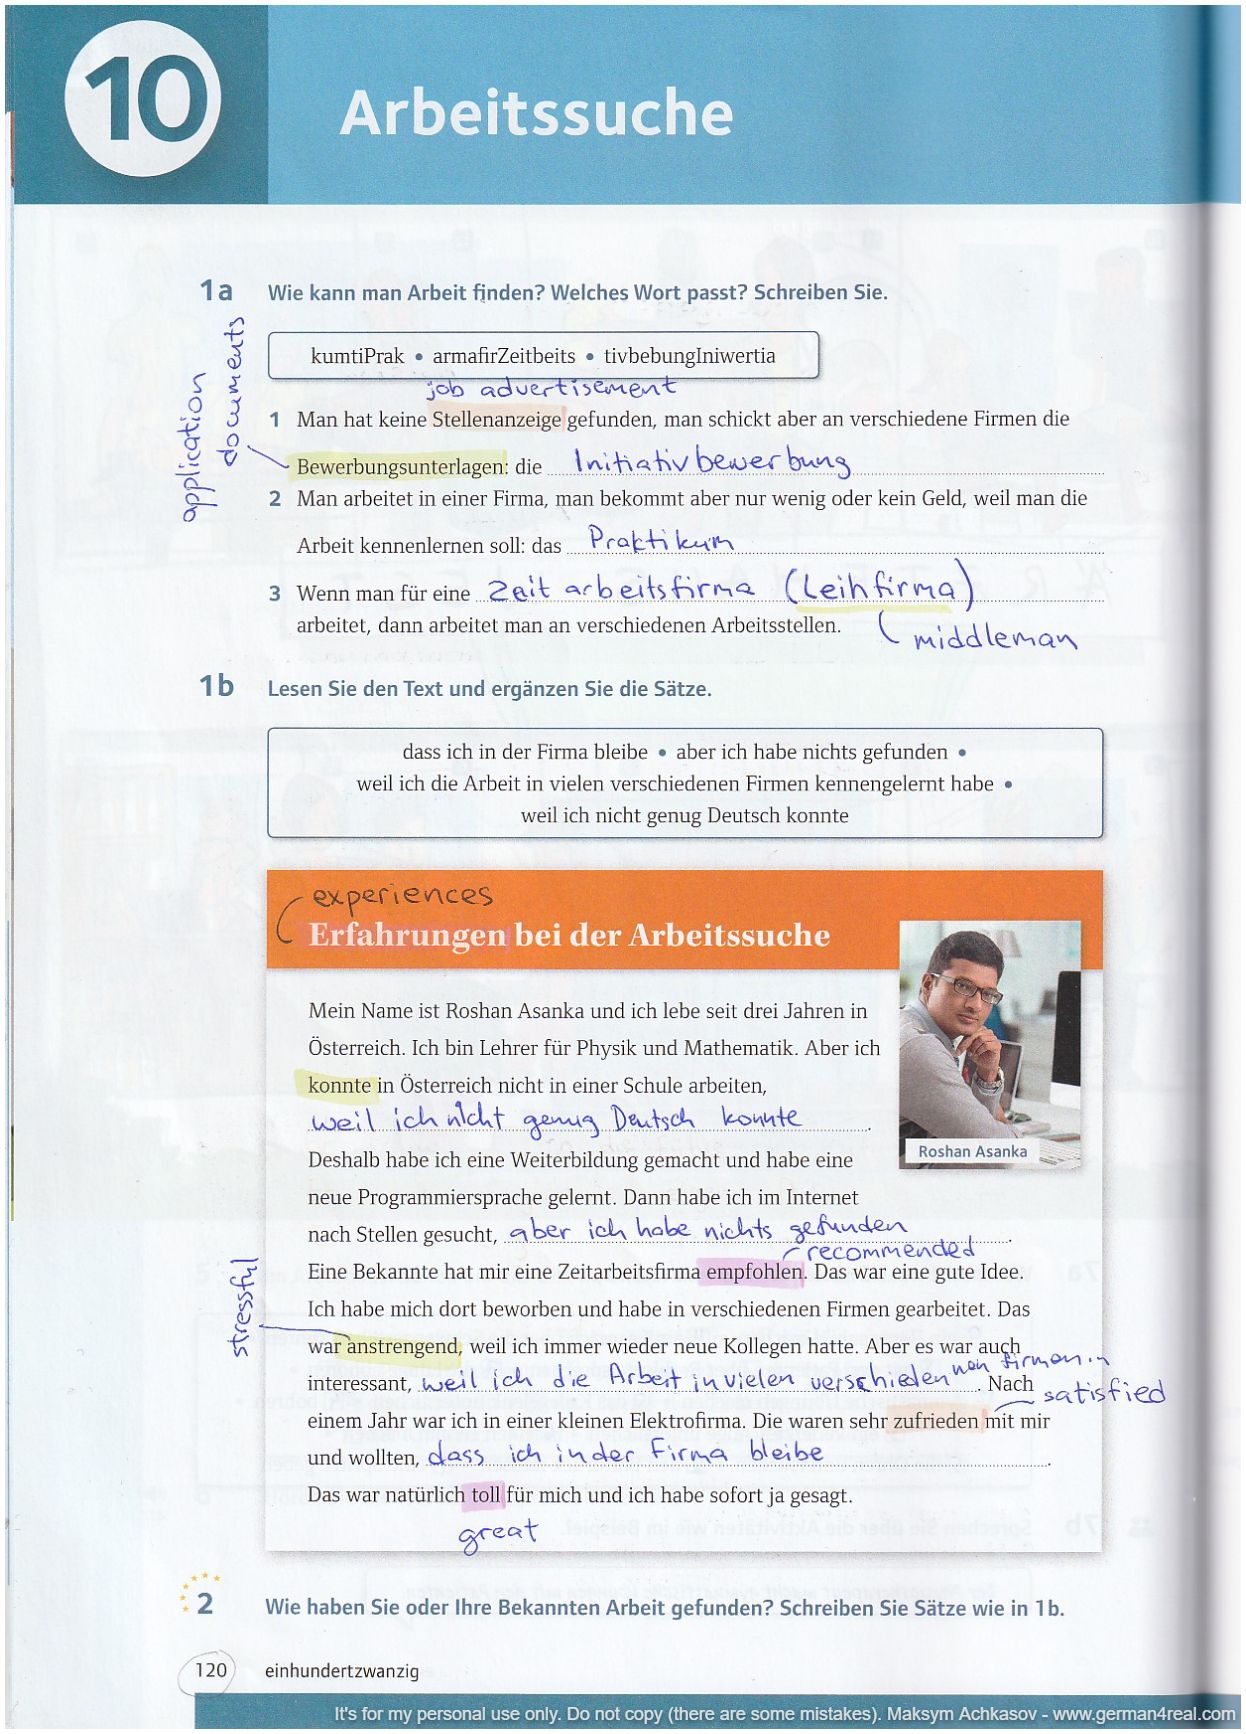 10
Arbeitssuche
1a Wie kann man Arbeit finden? Welches Wort passt? Schreiben Sie.
kumtiPrak • armafirZeitbeits • tivbebungIniwertia
job advertisement
application documents
1 Man hat keine Stellenanzeige gefunden, man schickt aber an verschiedene Firmen die
Bewerbungsunterlagen: die Initiativbewerbung
2 Man arbeitet in einer Firma, man bekommt aber nur wenig oder kein Geld, weil man die
Arbeit kennenlernen soll: das Praktikum
3 Wenn man für eine Zeitarbeitsfirma (Leihfirma)
arbeitet, dann arbeitet man an verschiedenen Arbeitsstellen.
middleman
1b Lesen Sie den Text und ergänzen Sie die Sätze.
dass ich in der Firma bleibe • aber ich habe nichts gefunden •
weil ich die Arbeit in vielen verschiedenen Firmen kennengelernt habe •
weil ich nicht genug Deutsch konnte
experiences
Erfahrungen bei der Arbeitssuche
Mein Name ist Roshan Asanka und ich lebe seit drei Jahren in
Österreich. Ich bin Lehrer für Physik und Mathematik. Aber ich
konnte in Österreich nicht in einer Schule arbeiten,
weil ich nicht genug Deutsch konnte.
Roshan Asanka
Deshalb habe ich eine Weiterbildung gemacht und habe eine
neue Programmiersprache gelernt. Dann habe ich im Internet
nach Stellen gesucht, aber ich habe nichts gefunden.
recommended
Eine Bekannte hat mir eine Zeitarbeitsfirma empfohlen. Das war eine gute Idee.
Ich habe mich dort beworben und habe in verschiedenen Firmen gearbeitet. Das
stressful
war anstrengend, weil ich immer wieder neue Kollegen hatte. Aber es war auch
interessant, weil ich die Arbeit in vielen verschieden. Nach
satisfied
einem Jahr war ich in einer kleinen Elektrofirma. Die waren sehr zufrieden mit mir
und wollten, dass ich in der Firma bleibe.
Das war natürlich toll für mich und ich habe sofort ja gesagt.
great
2 Wie haben Sie oder Ihre Bekannten Arbeit gefunden? Schreiben Sie Sätze wie in 1b.
120 einhundertzwanzig
It's for my personal use only. Do not copy (there are some mistakes). Maksym Achkasov - www.german4real.com